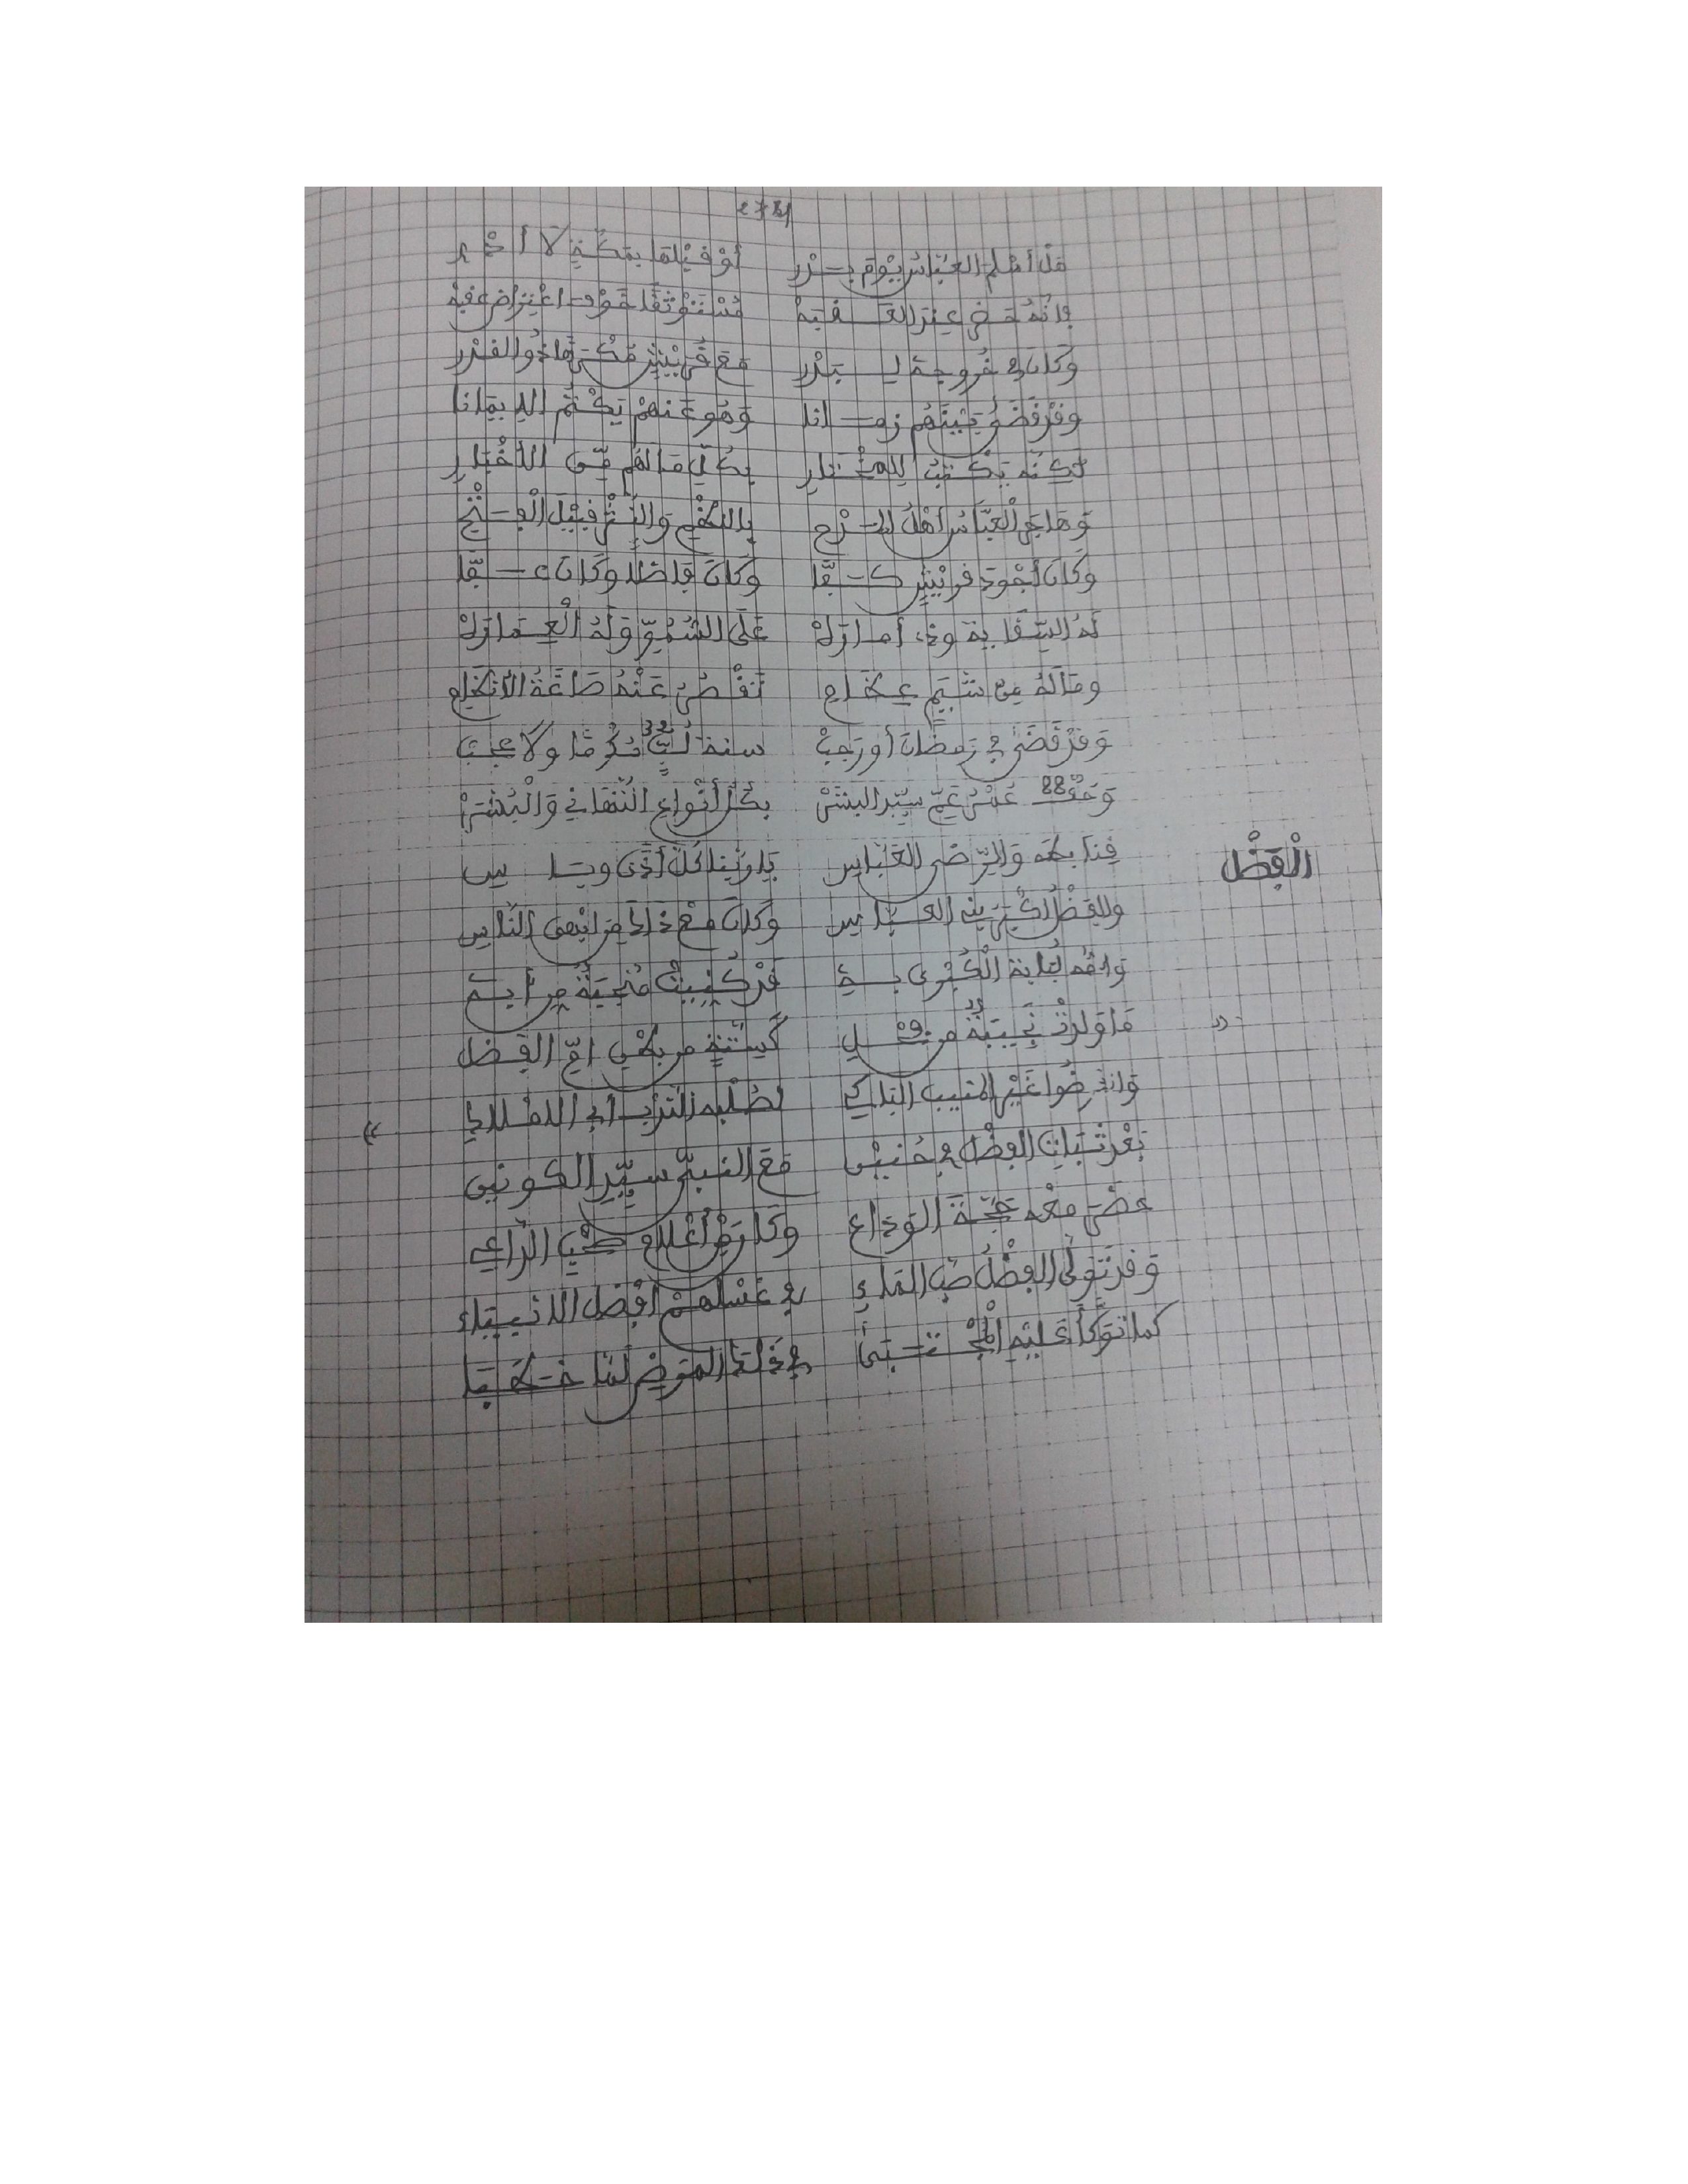 هل أسلم العباس يوم بدر أو قبلها بمكة لا أدر
وأنه حضر عند العقبه مستوثقا خوف اعتراض عقبه
وكان في خروجه لبدر مع قريش مكرها ذو القدر
وقد قضى بينهم زمانا وهو عنهم يكتم الإيمانا
لكنه يكتب للمختار بكل ما لهم من الأخبار
وهاجر العباس أهل المدح بالنظم والنثر قبيل الفتح
وكان أجود قريش كفا وكان فاضلا وكان عفا
له السقاية وذي أمارة على السمو وله العمارة
وما له من شيم عظام تقصر عنه صاغة الكلام
وقد قضى في رمضان أو رجب سنة لب مكرما ولا عجب
وحف 88 عمر عم سيد البشر بكل أنواع التهاني والبشر
فنا بكه والرضى العباس يا ربنا كل أذى وباس
الفضل
والفضل أكبر بني العباس وكان مع ذاك من ابهى الناس
وامه لبابة الكبرى بة قد كنيت منجبة من أية
ما ولدت نجيبة من فحل كستة من بطن ام الفضل
وانقرضوا غير المنيب الباكي لصلبه الترب أبي الاملاك
بعد ثبات الفضل في حنين مع النبي سيد الكونين
حضر معه حجة الوداع وكان ردف أعلام حين الداعي
وقد تولى الفضل صب الماء في غسلهم افضل الانبياء
كما توكأ عليه المجتبى في ذلك المرض لما خطبا